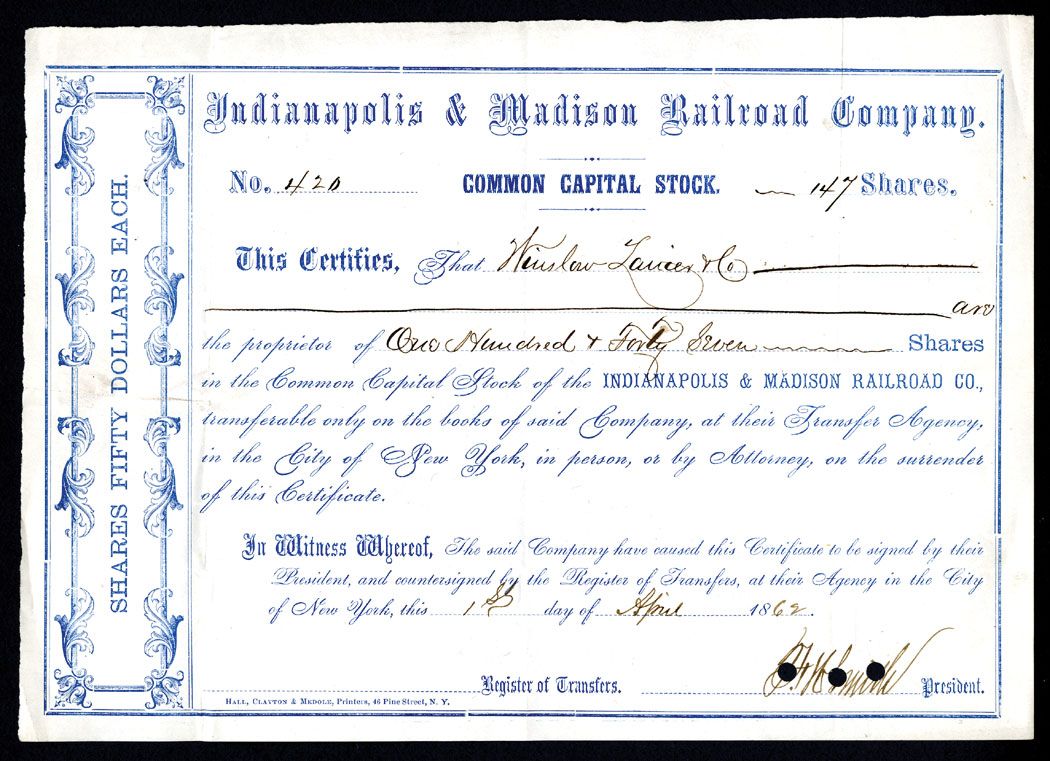 Indianapolis & Madison Railroad Company.
No. 420 COMMON CAPITAL STOCK. 147 Shares.
This Certifies, That Winslow Lanier & Co
are
the proprietor of One Hundred & Forty Seven Shares
in the Common Capital Stock of the INDIANAPOLIS & MADISON RAILROAD CO.,
transferable only on the books of said Company, at their Transfer Agency,
in the City of New York, in person, or by Attorney, on the surrender
of this Certificate.
In Witness Whereof, The said Company have caused this Certificate to be signed by their
President, and countersigned by the Register of Transfers, at their Agency in the City
of New York, this 1st day of April 1862.
Register of Transfers. Smith President.
HALL, CLAYTON & MEDOLE, Printers, 46 Pine Street, N. Y.
SHARES FIFTY DOLLARS EACH.